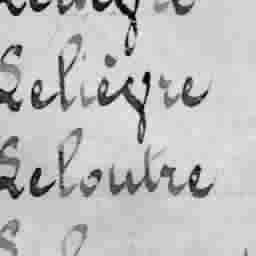 Lelièvre
Leloutre